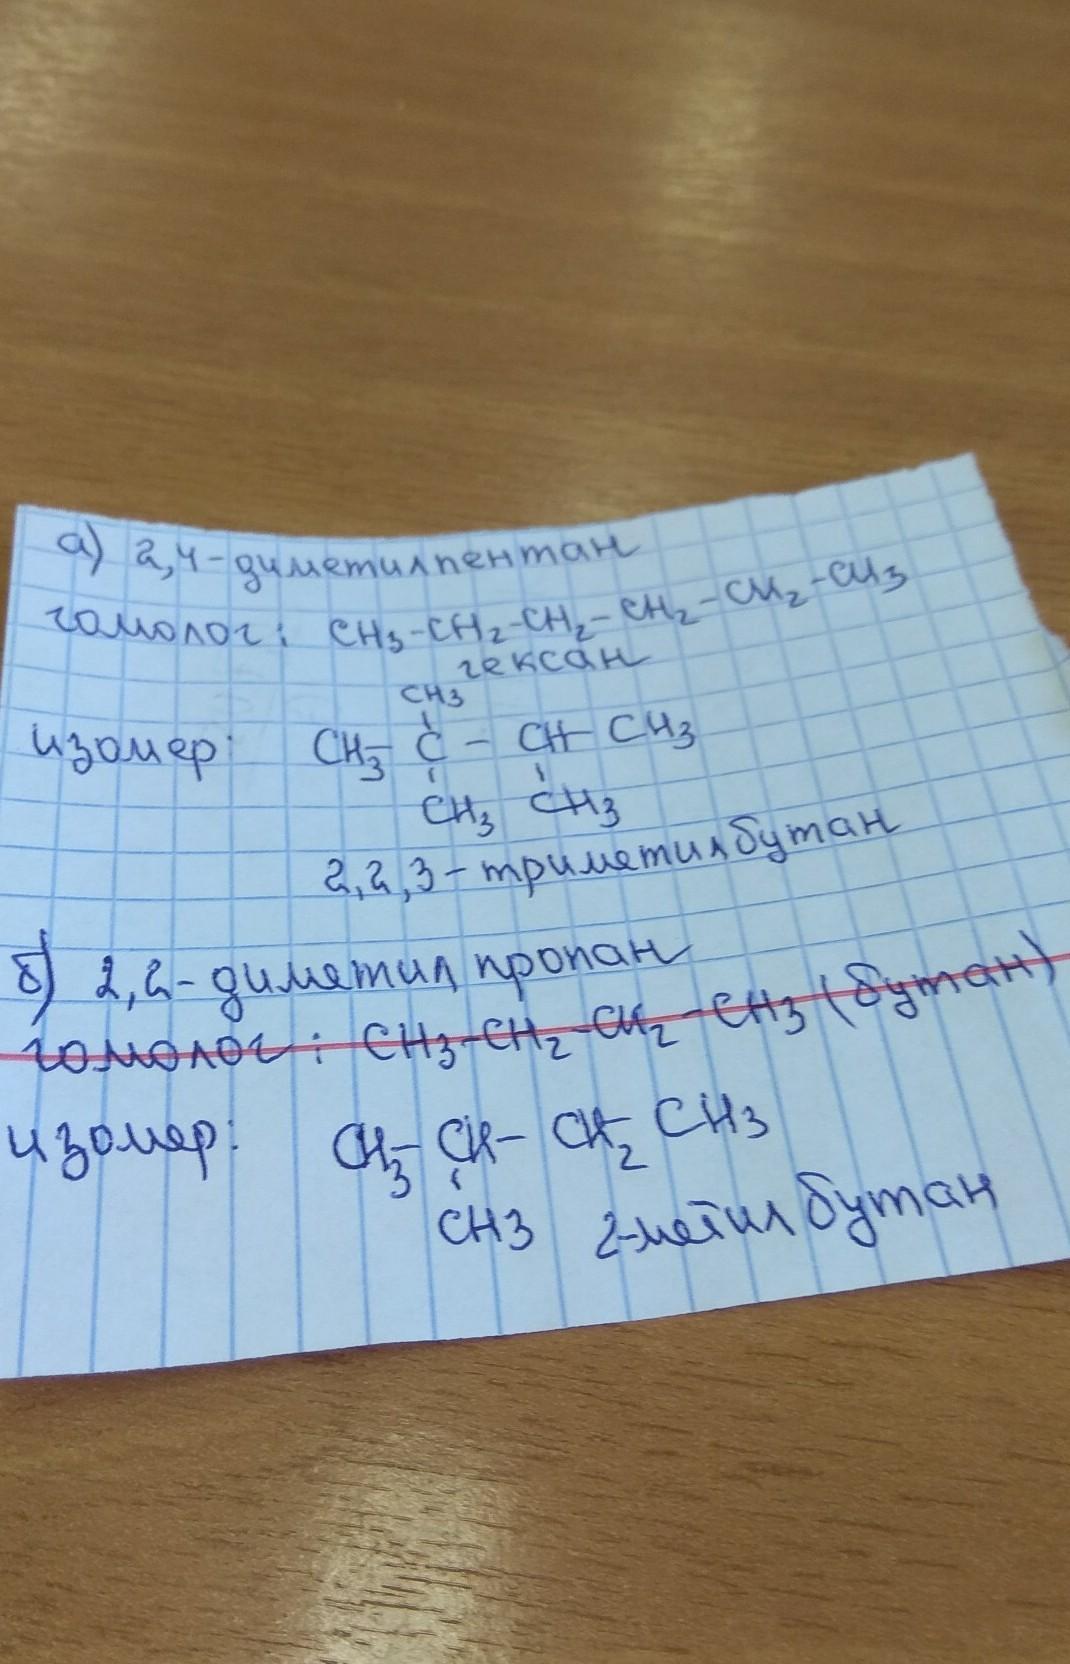 а) 2,4-диметилпентан
гомолог: CH3-CH2-CH2-CH2-CH2-CH3
гексан
CH3
изомер: CH3- C - CH- CH3
CH3 CH3
2,2,3-триметилбутан
б) 2,2-диметилпропан
гомолог: CH3-CH2-CH2-CH3 (бутан)
изомер: CH3- CH- CH2- CH3
CH3 2-метилбутан